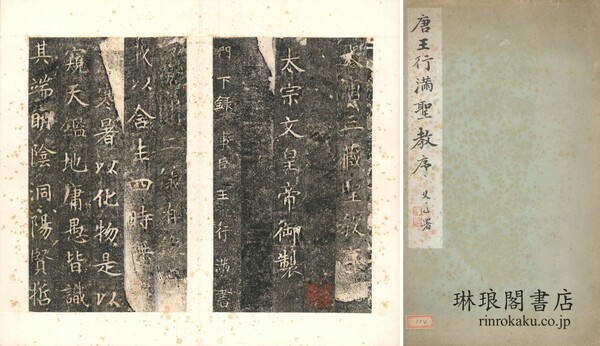 唐王行滿聖教序
署
琳琅閣書店
rinrokaku.co.jp
三藏聖教序
太宗文皇帝御製
門下錄事臣王行滿書
二儀有
以含生四時無
寒暑以化物是以
窺天鑑地庸愚皆識
其端明陰洞陽賢哲